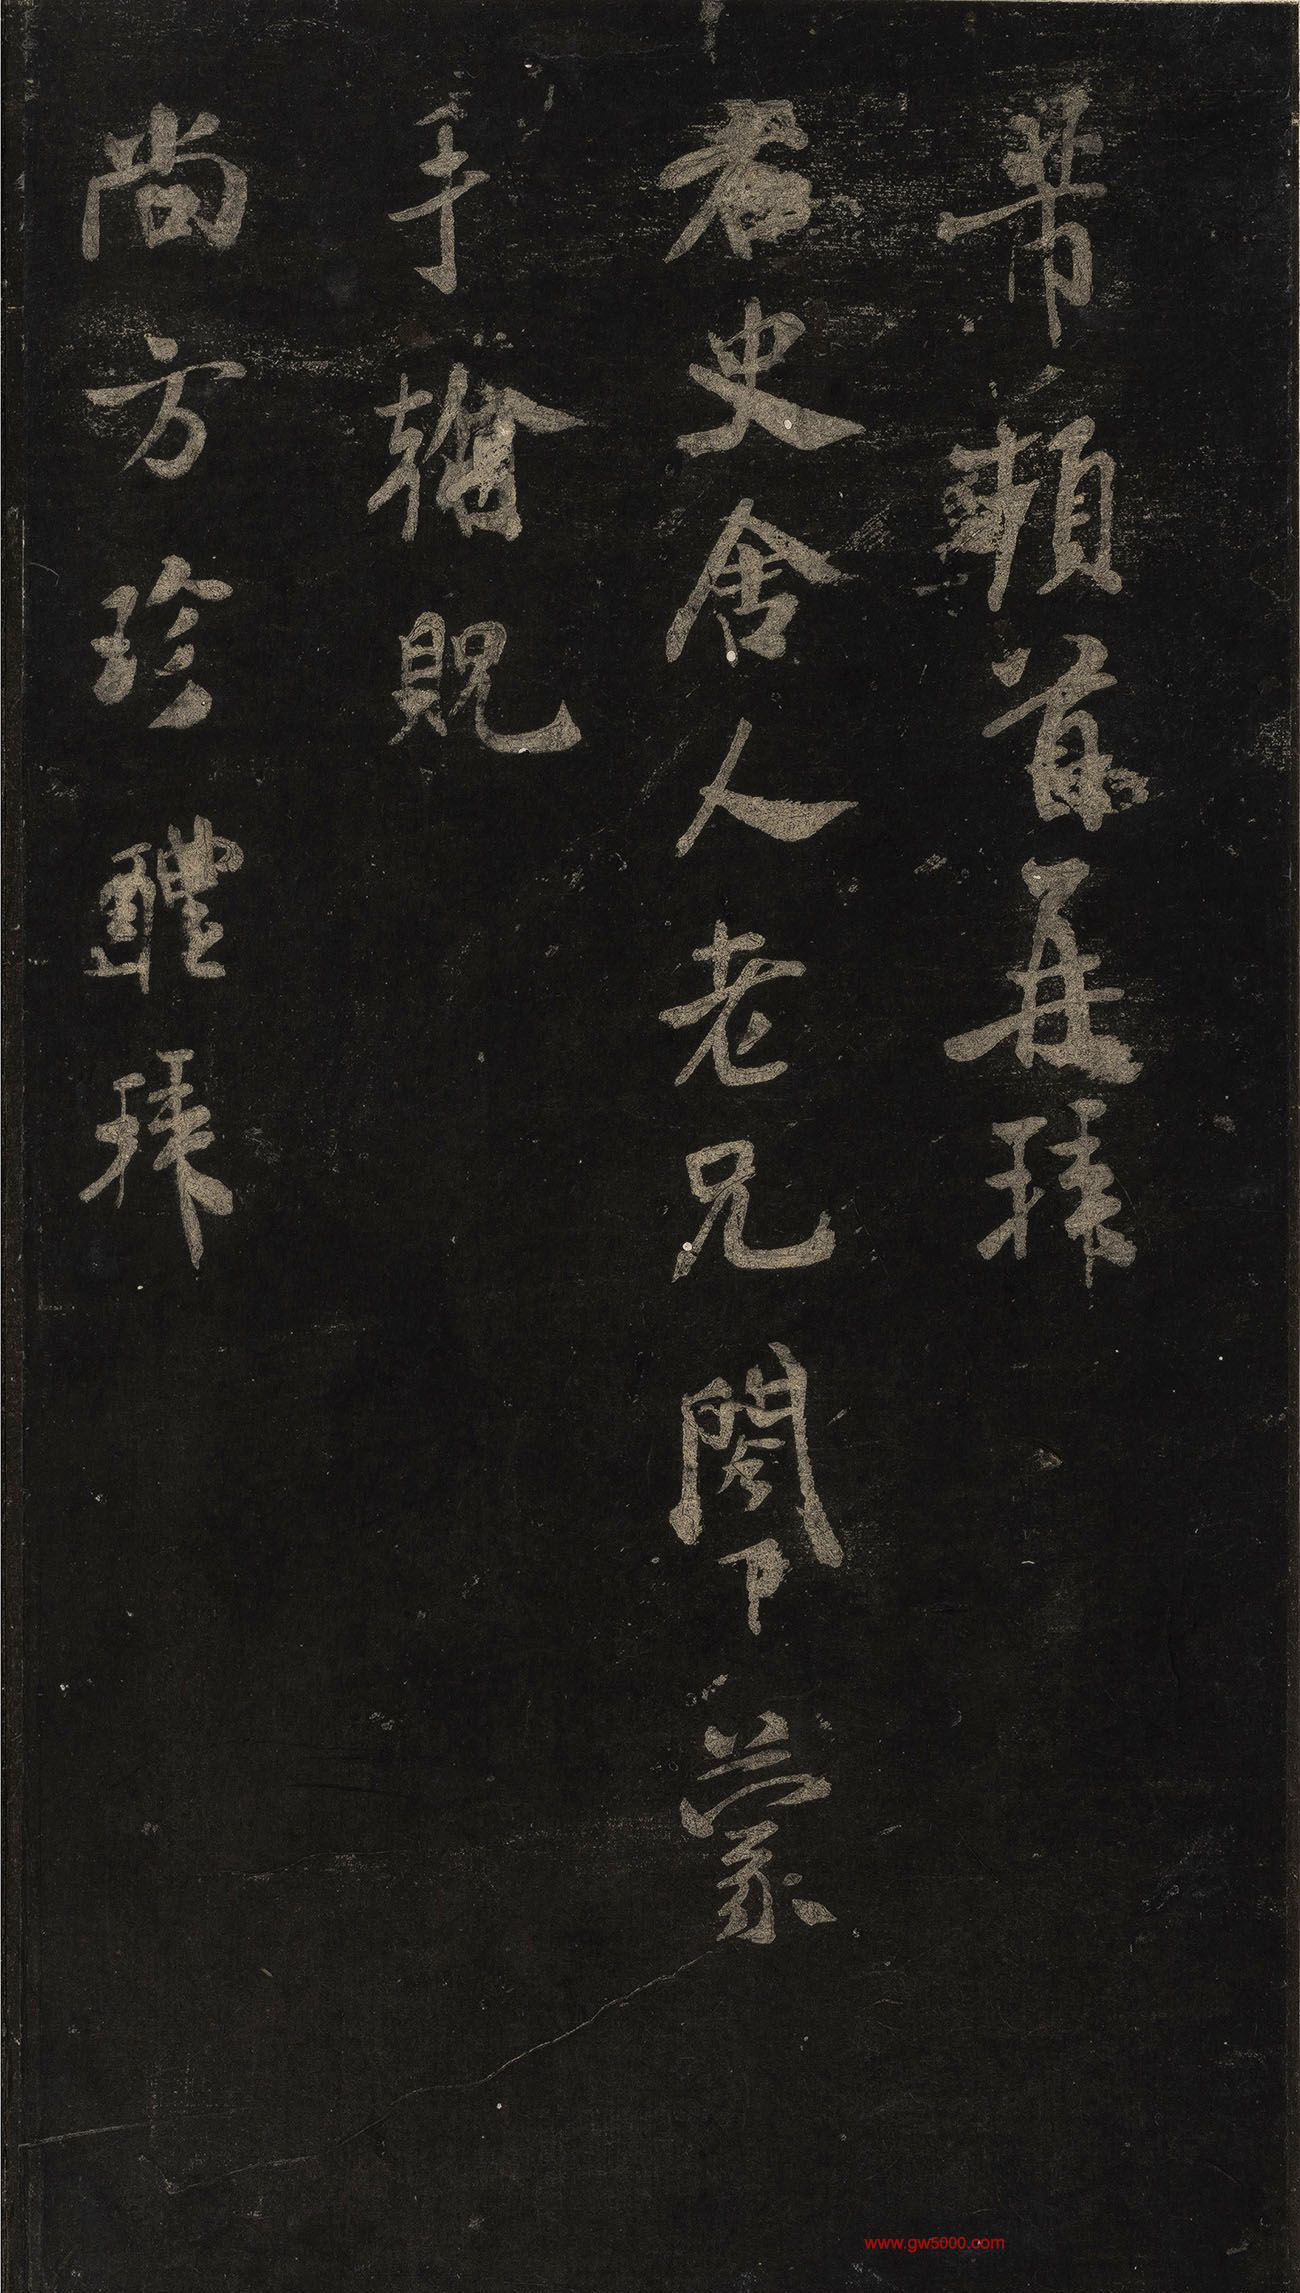 芾頓首再拜
右史舍人老兄閤下蒙
手翰貺
尚方珍醴拜
www.gw5000.com